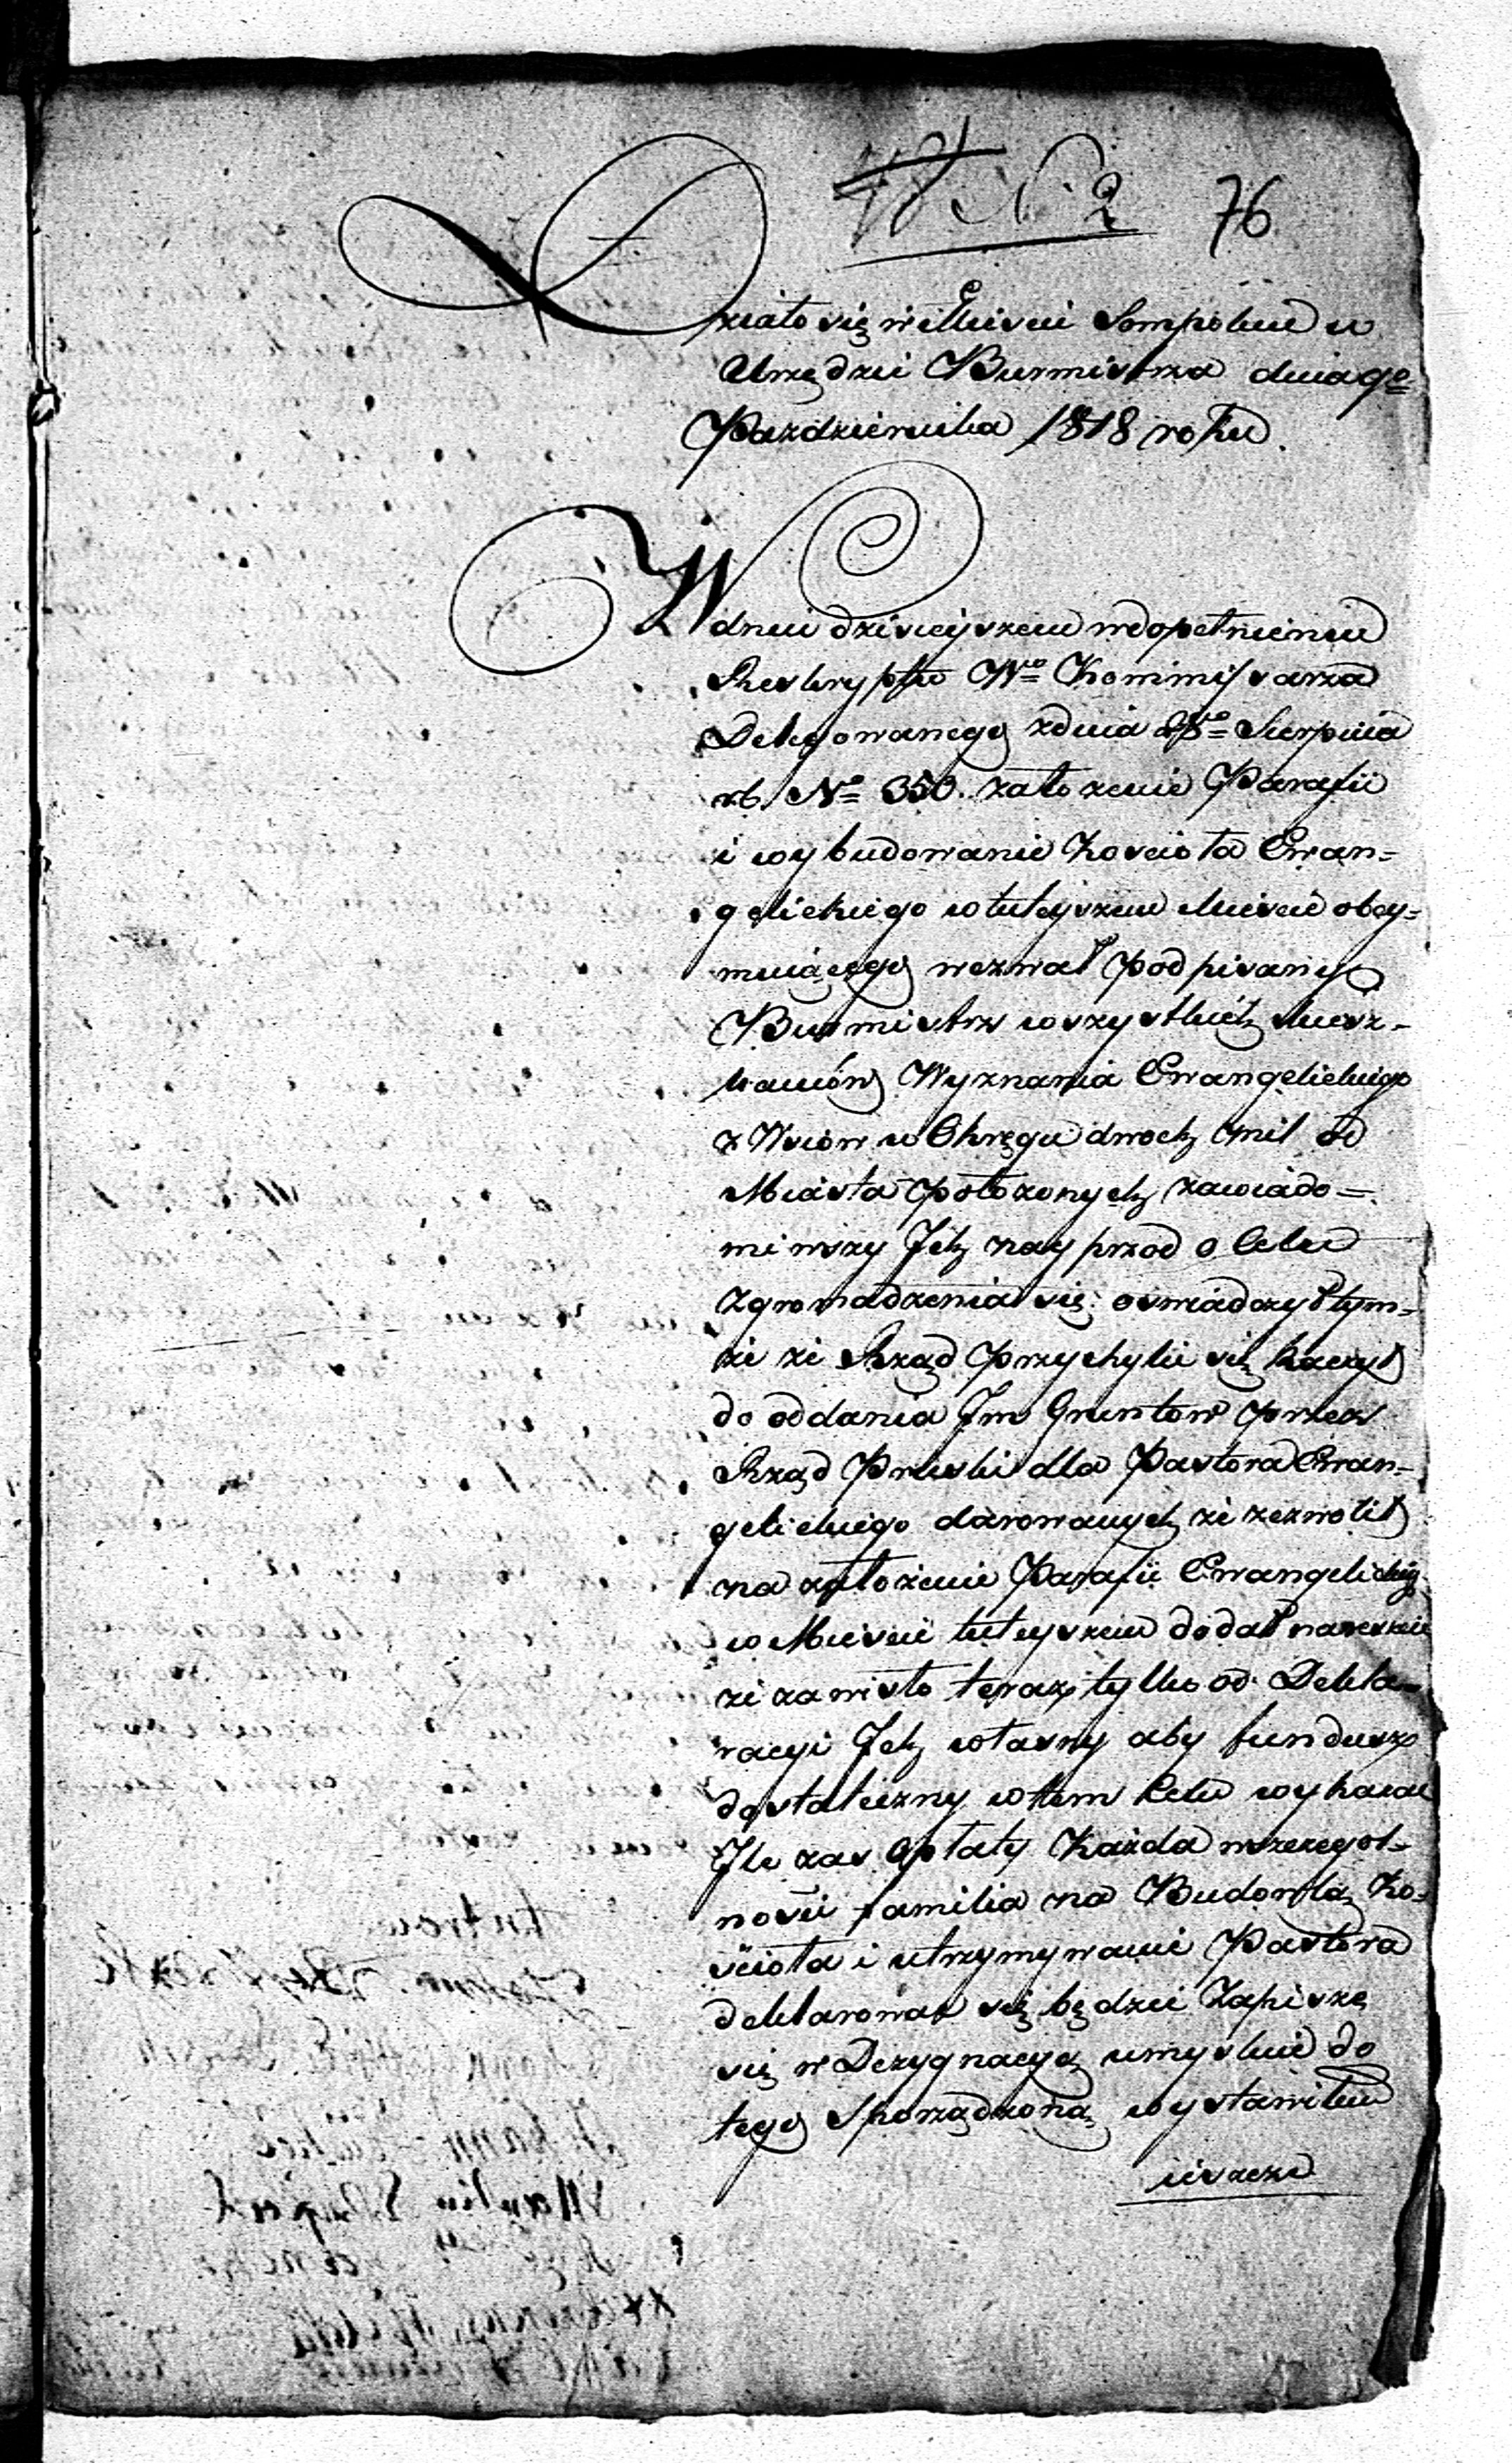 N. 2 76
Działo się w Mieście Sompolnie w
Urzędzie Burmistrza dnia 9o
Pazdziernika 1818 roku.
W dniu dzisieyszem w dopełnieniu
Reskryptu Wo Kommissarza
Delegowanego z dnia Sierpnia
rb. No 350. założenie Parafii
i wybudowanie Kościoła Ewan=
gelickiego w tuteyszem Mieście obey=
muiącego wezwał podpisany
Burmistrz wszystkich Miesz-
kańców Wyznania Ewangelickiego
z Wsiów w Okręgu dwoch mil od
Miasta położonych zawiado=
miwszy Ich nayprzod o Celu
Zgromadzenia się: oswiadczył tym=
że że Rząd przychylić się raczył
do oddania Im Gruntow przez
Rząd Pruski dla Pastora Ewan=
gelickiego darowanych że zezwolił
na założenie Parafii Ewangelickiey
w Mieście tuteyszem dodał nareszcie
że zawisło teraz tylko od Dekla=
racyi Ich własny aby fundusz
dostateczny w tem Celu wykazać
Ile zas Opłaty Każda w szczegol=
ności familia na Budowlą Ko=
ścioła i utrzymywanie Pastora
deklarować się będzie Zapisze
się w Dezygnacyą umyslnie do
tego Sporządzoną wystawiłem
ieszcze